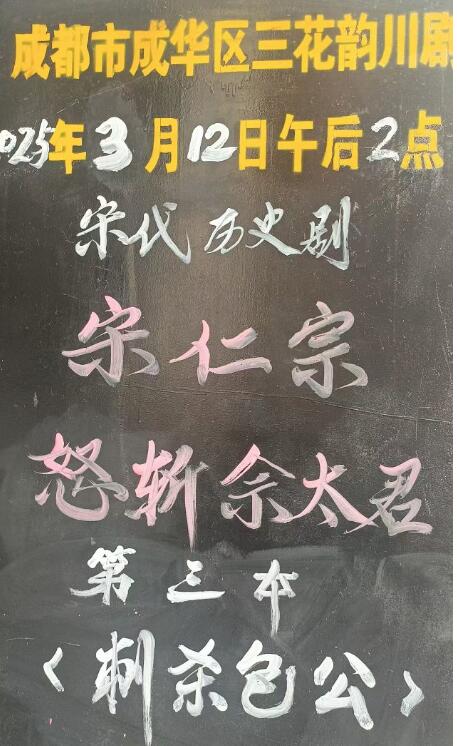 成都市成华区三花韵川剧
025年3月12日午后2点
宋代历史剧
宋仁宗
怒斩佘太君
第三本
〈刺杀包公〉